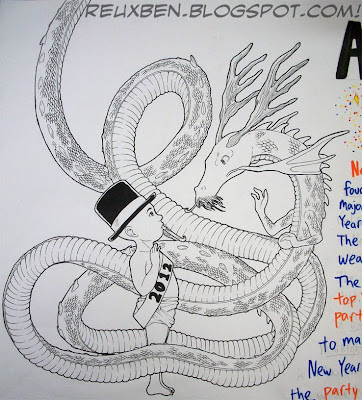 RELUXBEN.BLOGSPOT.COM!
A
2012
majo
Year
The
wea
The
top
part
to ma
New Year
the party